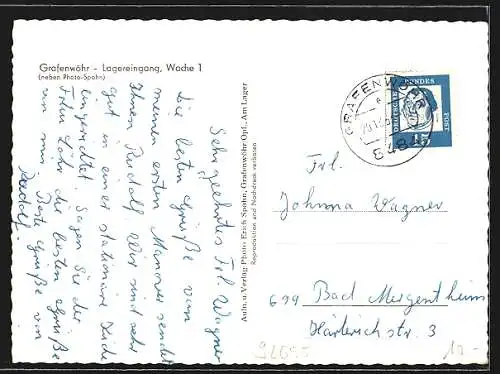 Grafenwöhr - Lagereingang, Wache 1
(neben Photo-Spahn)
Sehr geehrtes Frl. Wagner
Die besten Grüße vom
meinem ersten Manöver sendet
Ihnen Rudolf. Wir sind sehr
gut in einer stationäre Küche
eingerichtet. Sagen Sie der
Frau Löhr die besten Grüße
von mir. Beste Grüße von
Rudolf.
Aufn. u. Verlag Photo Erich Spahn, Grafenwöhr Opf., Am Lager
Reproduktion und Nachdruck verboten
GRAFENWÖHR
8484
DEUTSCHE BUNDESPOST
15
Frl.
Johanna Wagner
699 Bad Mergentheim
Härterichstr. 3
92655
10.-